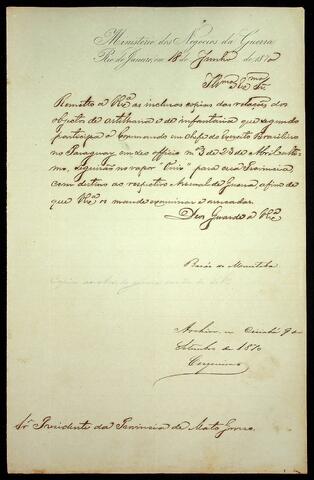 Ministerio dos Negocios da Guerra
Rio de Janeiro, em 18 de Junho de 1870
Illmo e Exmo Sr.
Remetto a V. Exª as inclusas copias das relações dos
objectos de artilharia e de infantaria que segundo
participa o Commando em chefe do Exercito Brasileiro
no Paraguay, em seo officio nº 3 de 23 de Abril ulti-
mo, seguirão no vapor para essa Provincia
com destino ao respectivo Arsenal de Guerra, afim de
que V. Exª os mande examinar e arrecadar.
Deos Guarde a V. Exª
Barão de Muritiba
Archive-se Cuiabá 9 de
Setembro de 1870
Sr. Presidente da Provincia de Mato Grosso.